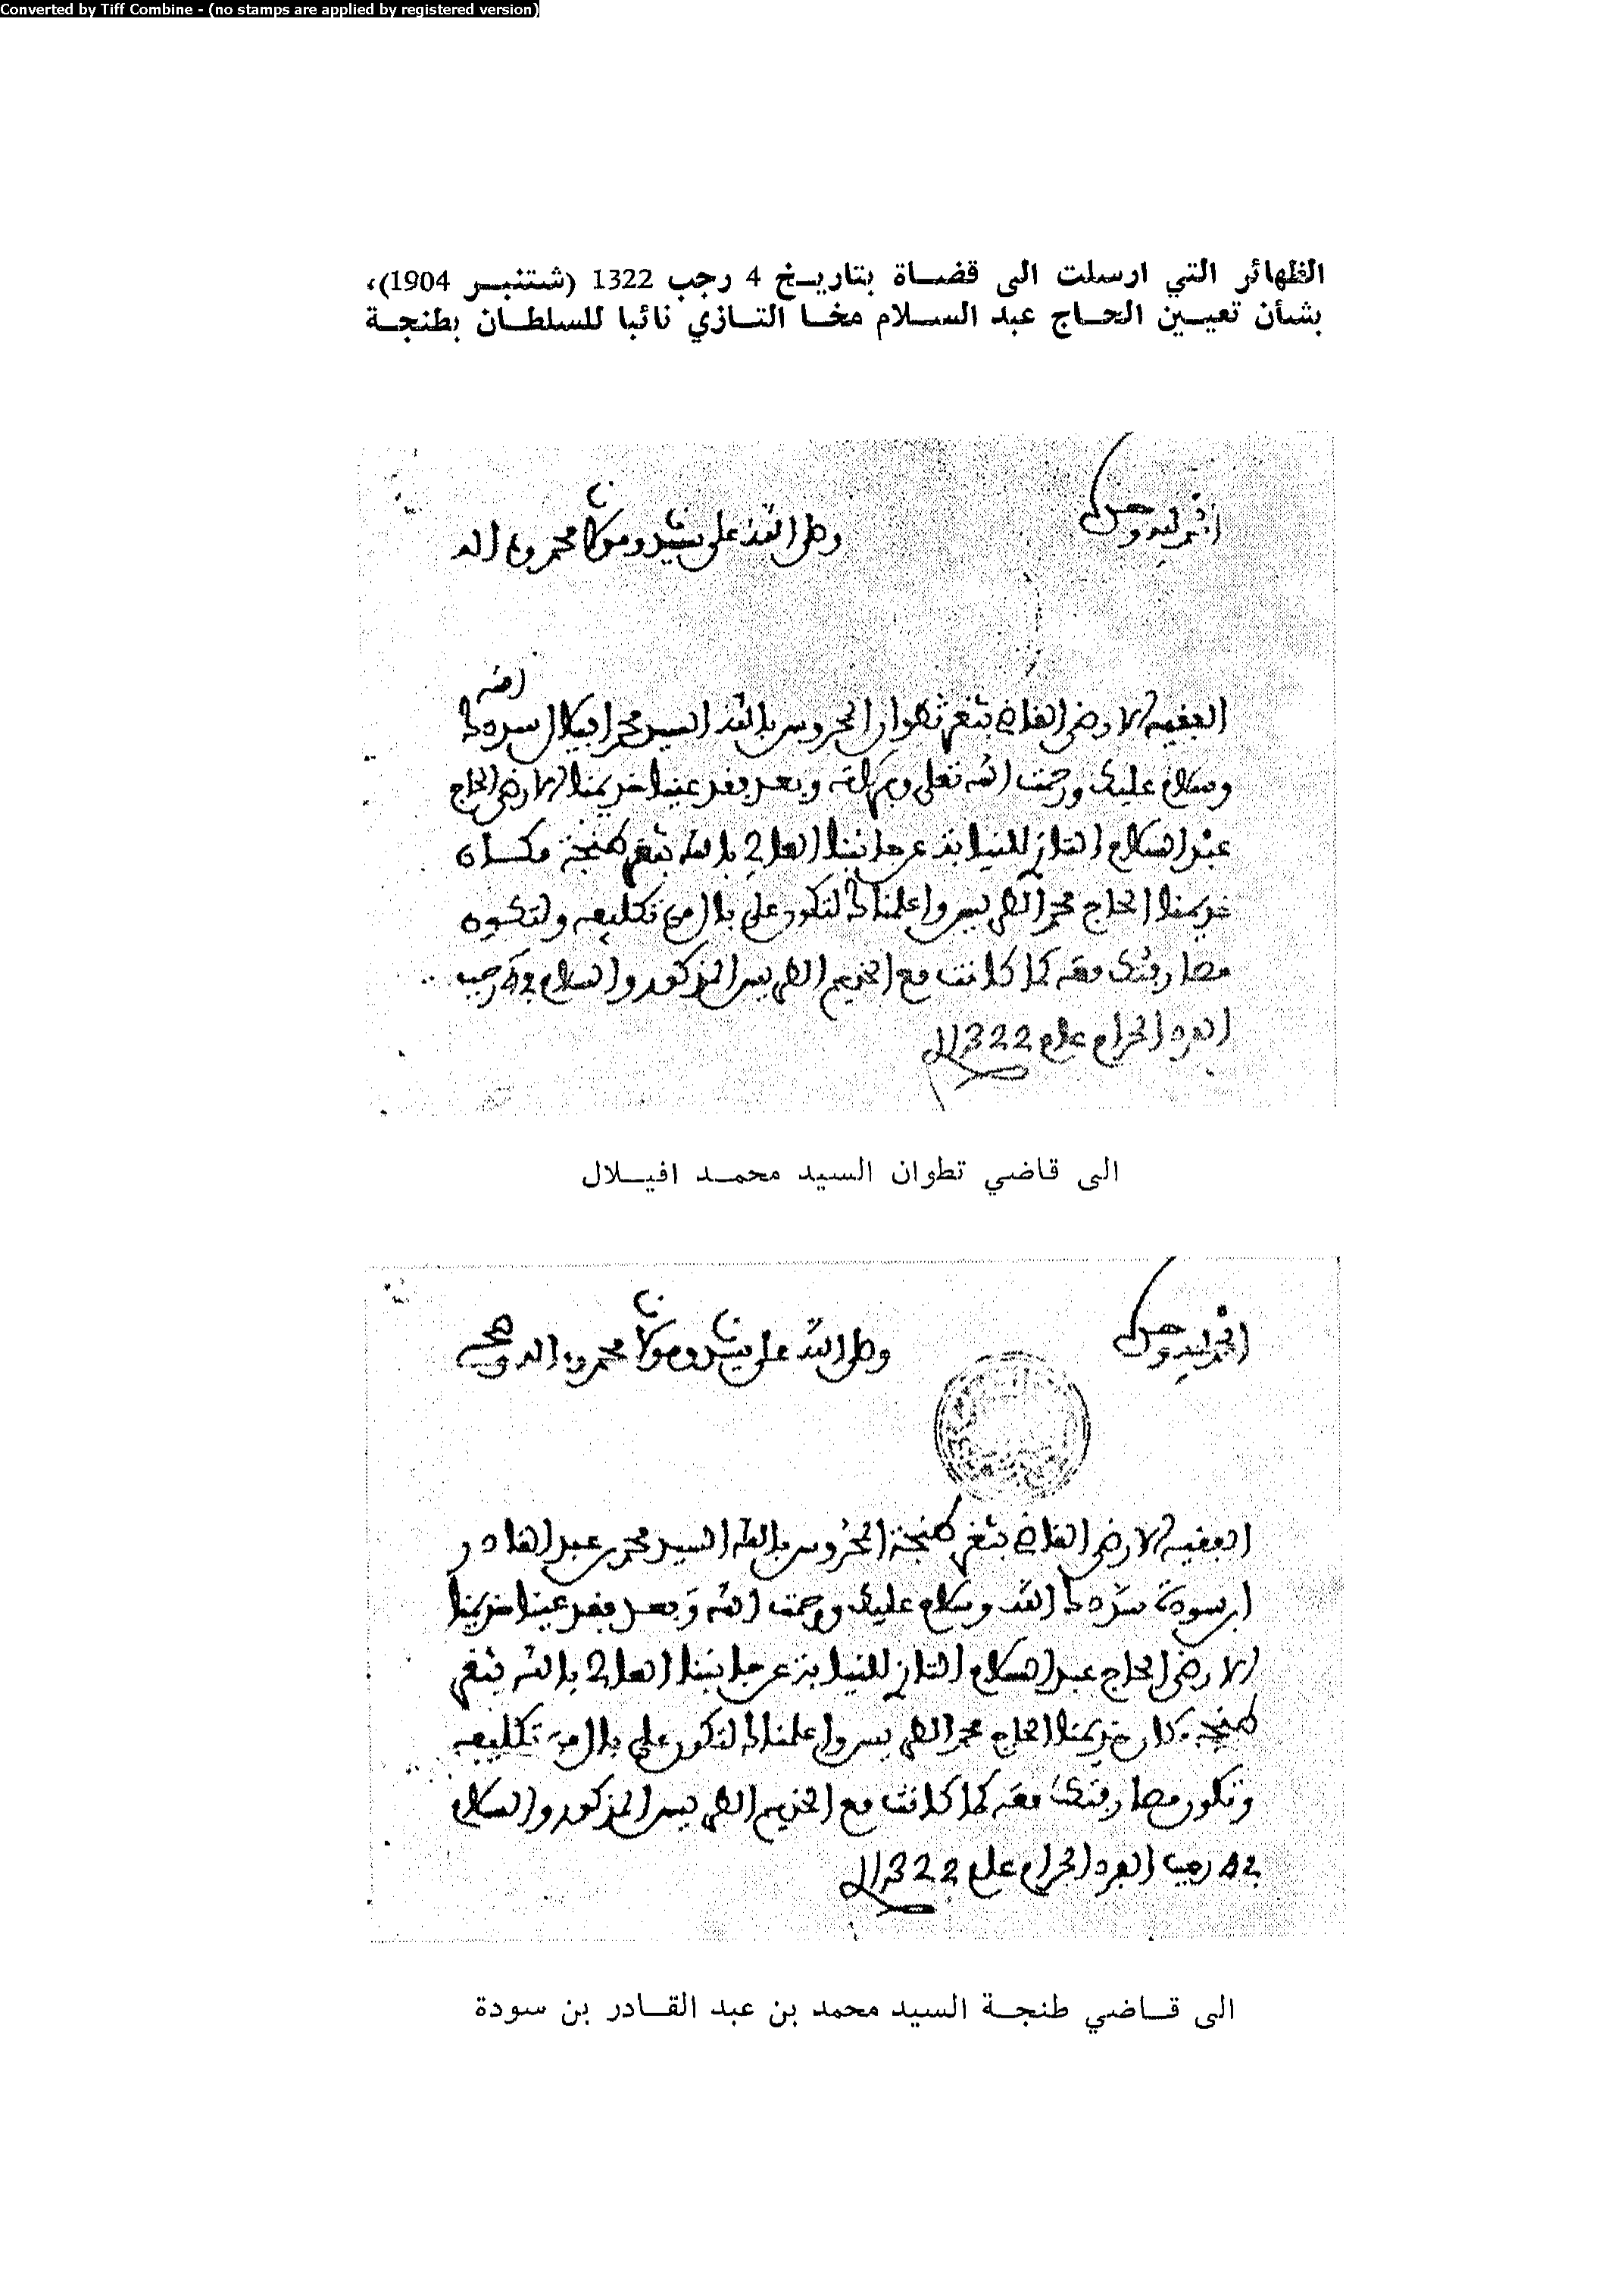 Converted by Tiff Combine - (no stamps are applied by registered version)
الظهائر التي ارسلت الى قضاة بتاريخ 4 رجب 1322 (شتنبر 1904)،
بشأن تعيين الحاج عبد السلام مخا التازي نائبا للسلطان بطنجة
الحمد لله وحده
وصلى الله على سيدنا ومولانا محمد وءاله
الفقيه الارضى القاضي بثغر تطوان المحروس بالله السيد محمد افيلال سددك الله
وسلام عليك ورحمت الله تعلى وبركاته وبعد فقد عينا خديمنا الارضى الحاج
عبد السلام التازي للنيابة عن جانبنا العالي بالله بثغر طنجة مكان
خديمنا الحاج محمد الطريس واعلمناك لتكون على بال من تكليفه ولتكون
مصارفتك معه كما كانت مع الخديم الطريس المذكور والسلام في 4 رجب
الفرد الحرام عام 1322
الى قاضي تطوان السيد محمد افيلال
الحمد لله وحده
وصلى الله على سيدنا ومولانا محمد وءاله وصحبه
الفقيه الارضى القاضي بثغر طنجة المحروس بالله السيد محمد بن عبد القادر
ابن سودة سددك الله وسلام عليك ورحمت الله وبعد فقد عينا خديمنا
الارضى الحاج عبد السلام التازي للنيابة عن جانبنا العالي بالله بثغر
طنجة مكان خديمنا الحاج محمد الطريس واعلمناك لتكون على بال من تكليفه
وتكون مصارفتك معه كما كانت مع الخديم الطريس المذكور والسلام
في 4 رجب الفرد الحرام عام 1322
الى قاضي طنجة السيد محمد بن عبد القادر بن سودة